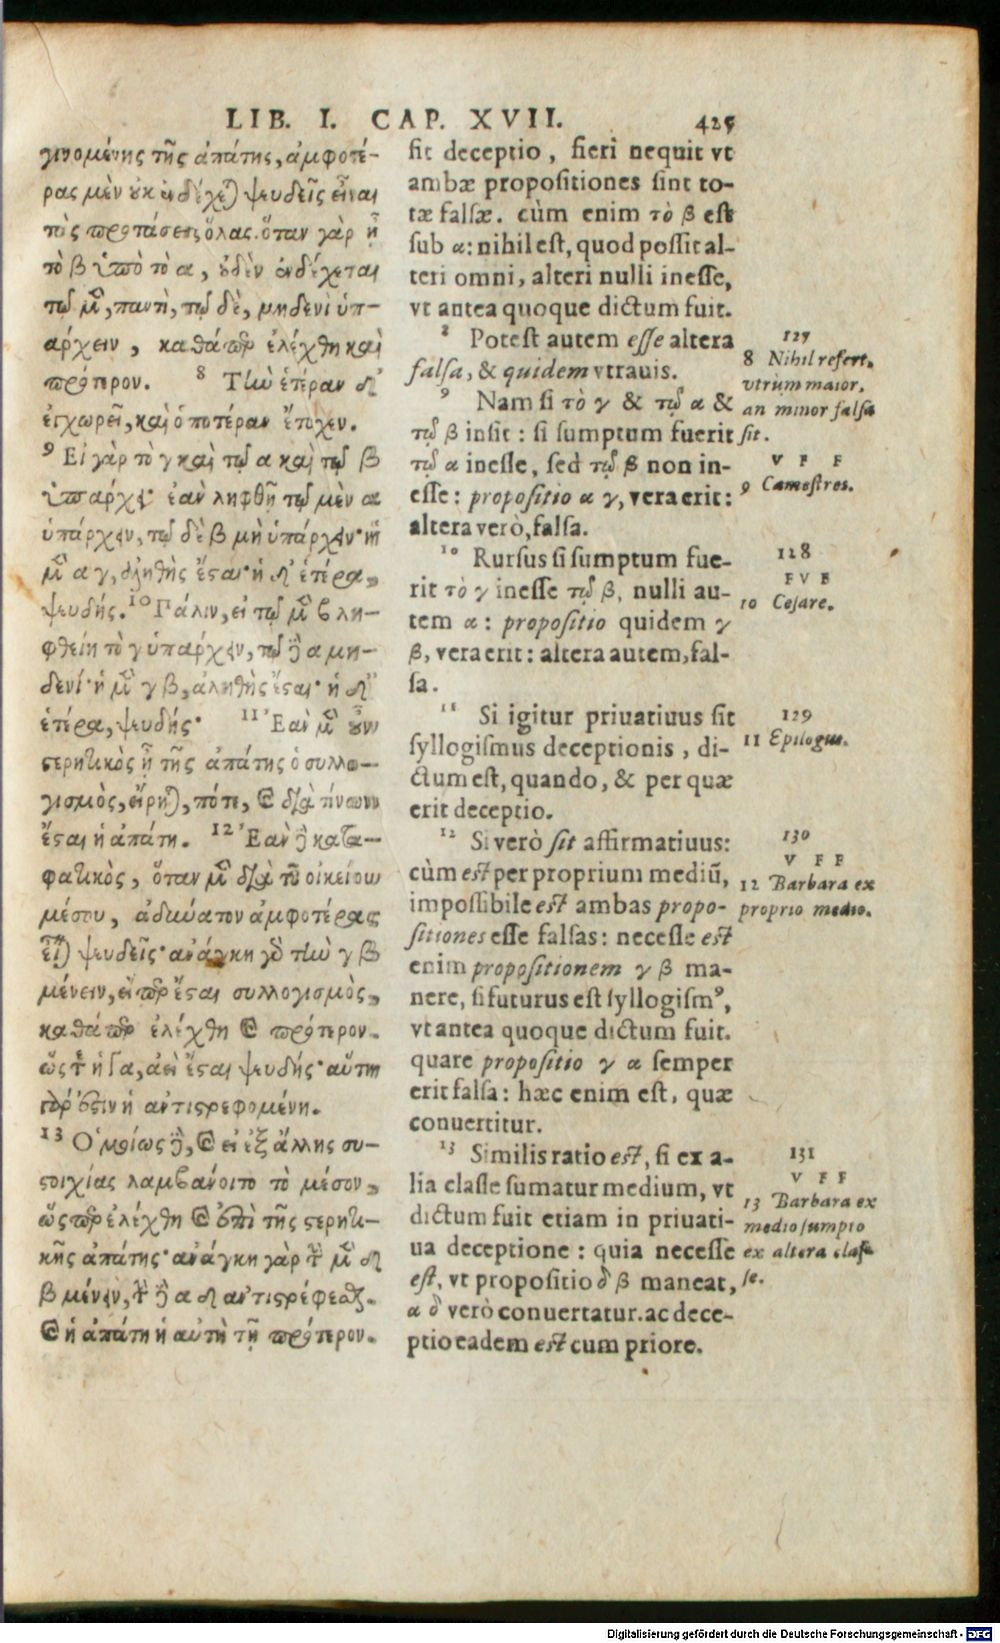 LIB. I. CAP. XVII. 425
γινομένης τῆς ἀπάτης, ἀμφοτέ-
ρας μὲν οὐκ ἐνδέχεται ψευδεῖς εἶναι
τὰς προτάσεις ὅλας. ὅταν γὰρ ᾖ
τὸ β ὑπὸ τὸ α, οὐδὲν ἐνδέχεται
τῷ μὲν, παντὶ, τῷ δὲ, μηδενὶ ὑπ-
άρχειν, καθάπερ ἐλέχθη καὶ
πρότερον. 8 Τὴν ἑτέραν δ'
ἐγχωρεῖ, καὶ ὁποτέραν ἔτυχεν.
9 Εἰ γὰρ τὸ γ καὶ τῷ α καὶ τῷ β
ὑπάρχει· ἐὰν ληφθῇ τῷ μὲν α
ὑπάρχειν, τῷ δὲ β μὴ ὑπάρχειν· ἡ
μὲν α γ, ἀληθὴς ἔσται· ἡ δ' ἑτέρα,
ψευδής. 10 Πάλιν, εἰ τῷ μὲν β λη-
φθείη τὸ γ ὑπάρχειν, τῷ δὲ α μη-
δενί· ἡ μὲν γ β, ἀληθὴς ἔσται· ἡ δ'
ἑτέρα, ψευδής· 11 Ἐὰν μὲν οὖν
στερητικὸς ᾖ τῆς ἀπάτης ὁ συλλο-
γισμὸς, εἴρηται, πότε, καὶ διὰ τίνων
ἔσται ἡ ἀπάτη. 12 Ἐὰν δὲ κατα-
φατικὸς, ὅταν μὲν διὰ τοῦ οἰκείου
μέσου, ἀδύνατον ἀμφοτέρας
εἶναι ψευδεῖς· ἀνάγκη γὰρ τὴν γ β
μένειν, εἴπερ ἔσται συλλογισμὸς,
καθάπερ ἐλέχθη καὶ πρότερον.
ὥστε ἡ γα, ἀεὶ ἔσται ψευδής· αὕτη
γάρ ἐστιν ἡ ἀντιστρεφομένη.
13 Ὁμοίως δὲ, καὶ εἰ ἐξ ἄλλης συ-
στοιχίας λαμβάνοιτο τὸ μέσον,
ὥσπερ ἐλέχθη καὶ ἐπὶ τῆς στερητι-
κῆς ἀπάτης· ἀνάγκη γὰρ τὴν μὲν δ
β μένειν, τὴν δὲ α δ ἀντιστρέφεσθαι.
καὶ ἡ ἀπάτη ἡ αὐτὴ τῇ πρότερον.
sit deceptio, fieri nequit vt
ambæ propositiones sint to-
tæ falsæ. cùm enim τὸ β est
sub α: nihil est, quod possit al-
teri omni, alteri nulli inesse,
vt antea quoque dictum fuit.
8 Potest autem esse altera
falsa, & quidem vtrauis.
9 Nam si τὸ γ & τῷ α &
τῷ β insit: si sumptum fuerit
τῷ α inesse, sed τῷ β non in-
esse: propositio α γ, vera erit:
altera verò, falsa.
10 Rursus si sumptum fue-
rit τὸ γ inesse τῷ β, nulli au-
tem α: propositio quidem γ
β, vera erit: altera autem, fal-
sa.
11 Si igitur priuatiuus sit
syllogismus deceptionis, di-
ctum est, quando, & per quæ
erit deceptio.
12 Si verò sit affirmatiuus:
cùm est per proprium mediũ,
impossibile est ambas propo-
sitiones esse falsas: necesse est
enim propositionem γ β ma-
nere, si futurus est syllogismꝰ,
vt antea quoque dictum fuit.
quare propositio γ α semper
erit falsa: hæc enim est, quæ
conuertitur.
13 Similis ratio est, si ex a-
lia classe sumatur medium, vt
dictum fuit etiam in priuati-
ua deceptione: quia necesse
est, vt propositio δ β maneat,
α δ verò conuertatur. ac dece-
ptio eadem est cum priore.
127
8 Nihil refert,
vtrùm maior,
an minor falsa
sit.
V F F
9 Camestres.
128
F V F
10 Cesare.
129
11 Epilogus.
130
V F F
12 Barbara ex
proprio medio.
131
V F F
13 Barbara ex
medio sumpto
ex altera clas
se.
Digitalisierung gefördert durch die Deutsche Forschungsgemeinschaft - DFG